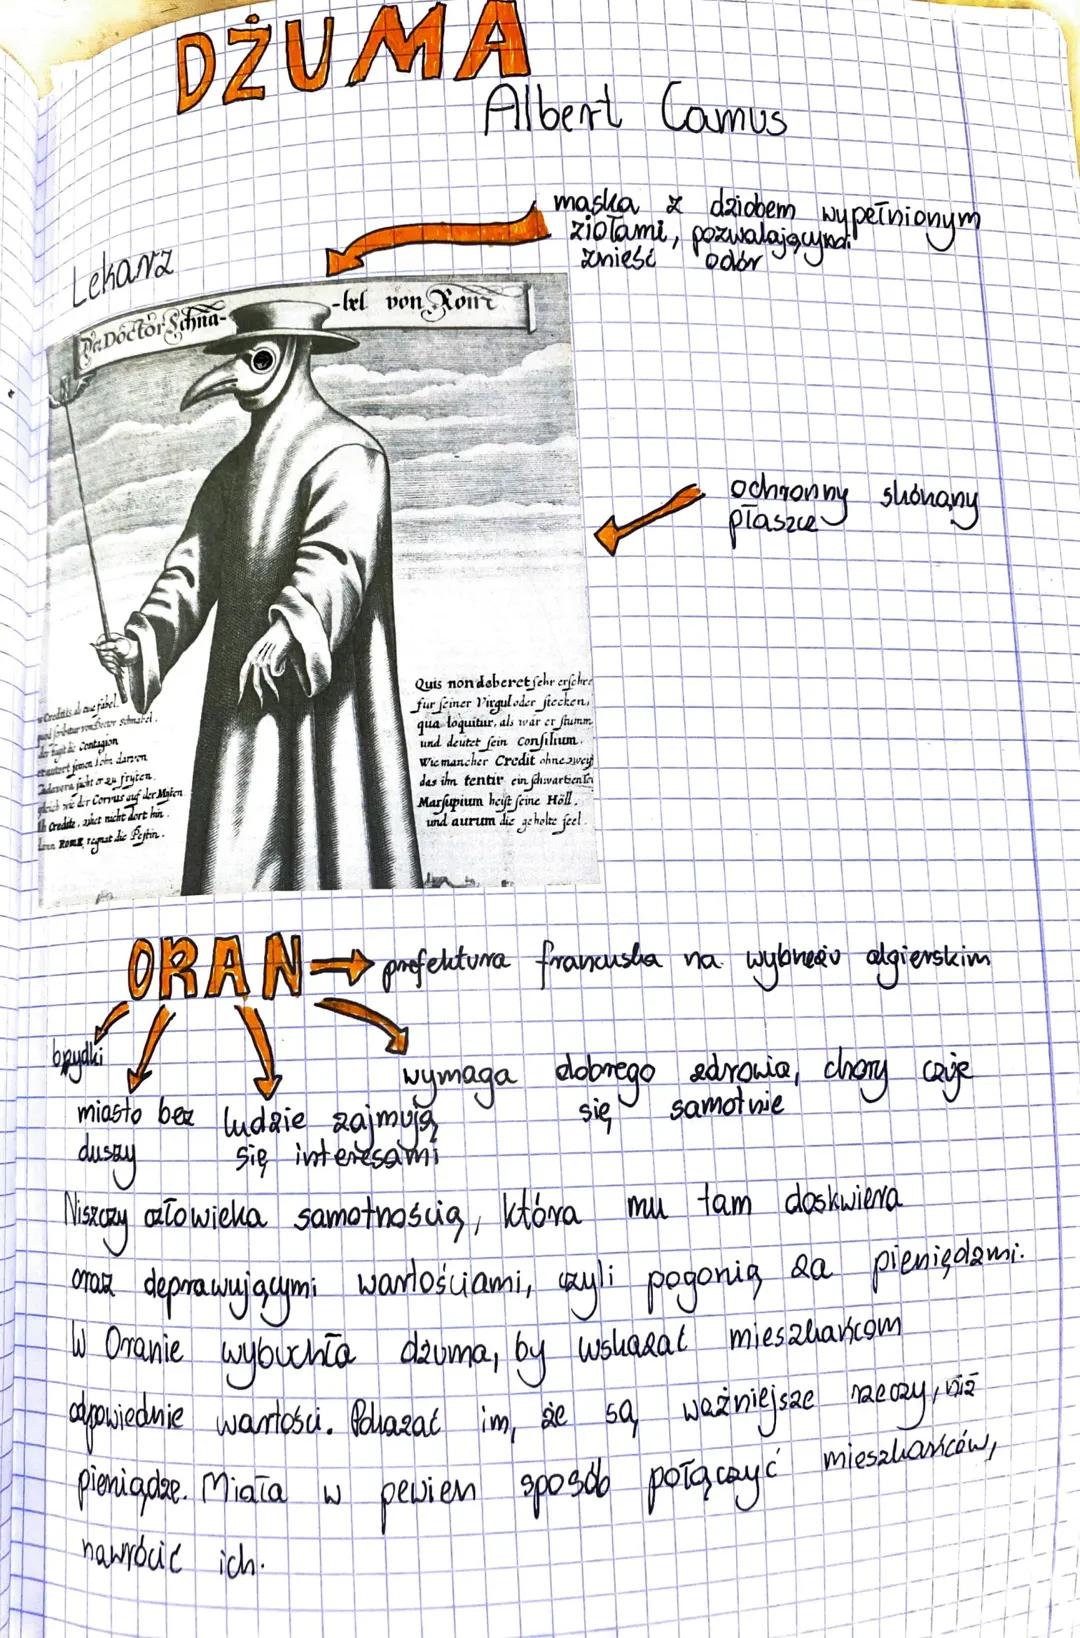 DŻUMA
Albert Camus
maska z dziobem wypełnionym
ziołami, pozwalającymi
znieść odór
Lekarz
Doctor Schna-
-bel von Rom
ochronny skórzany
płaszcz
Quis non deberet sehr erschre
fur seiner Virgul oder stecken,
qua loquitur, als wär er stumm
und deutet sein Consilium.
Wie mancher Credit ohne zweif
das ihn tentir ein schwartz
Marsupium heist seine Höll,
und aurum die geholte seel.
Credits als eine fabel.
Doctor Schnabel.
Contagion
seinen Lohn darvon
Cadavera sucht er zu fristen
gleich wie der Corvus auf der Misten
Ah Credite, zihet nicht dort hin,
dann ROMÆ regnat die Pestin.
ORAN → prefektura francuska na wybrzeżu algierskim
brzydki
miasto bez
duszy
ludzie zajmują
się interesami
wymaga dobrego zdrowia, chory czuje
się samotnie
Niszczy człowieka samotnością, która mu tam doskwiera
oraz deprawującymi wartościami, czyli pogonią za pieniędzmi.
W Oranie wybuchła dżuma, by wskazać mieszkańcom
odpowiednie wartości. Pokazać im, że są ważniejsze rzeczy, niż
pieniądze. Miała w pewien sposób połączyć mieszkańców,
nawrócić ich.